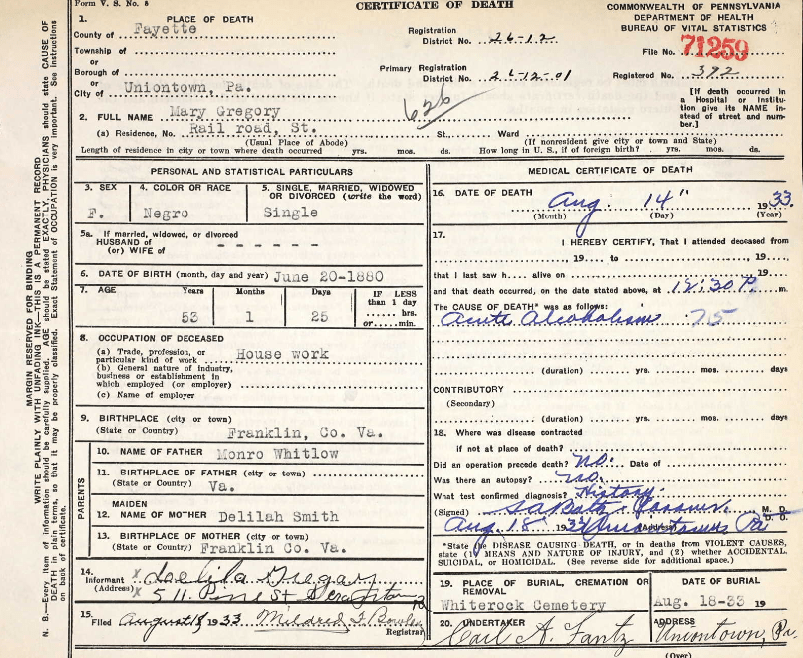 Form V. S. No. 5
CERTIFICATE OF DEATH
COMMONWEALTH OF PENNSYLVANIA
DEPARTMENT OF HEALTH
BUREAU OF VITAL STATISTICS
1. PLACE OF DEATH
County of Fayette
Registration District No. 26-12
File No. 71259
Township of
or
Borough of
or
City of Uniontown, Pa.
Primary Registration District No. 26-12-01
Registered No. 372
[If death occurred in a Hospital or Institution give its NAME instead of street and number.]
626
2. FULL NAME Mary Gregory
(a) Residence, No. Rail road, St. St. Ward
(Usual Place of Abode) (If nonresident give city or town and State)
Length of residence in city or town where death occurred yrs. mos. ds. How long in U. S., if of foreign birth? yrs. mos. ds.
PERSONAL AND STATISTICAL PARTICULARS
3. SEX F.
4. COLOR OR RACE Negro
5. SINGLE, MARRIED, WIDOWED OR DIVORCED (write the word) Single
5a. If married, widowed, or divorced
HUSBAND of
(or) WIFE of - - - - - -
6. DATE OF BIRTH (month, day and year) June 20-1880
7. AGE Years Months Days IF LESS than 1 day ... hrs. or ... min.
53 1 25
8. OCCUPATION OF DECEASED
(a) Trade, profession, or particular kind of work House work
(b) General nature of industry, business or establishment in which employed (or employer)
(c) Name of employer
9. BIRTHPLACE (city or town)
(State or Country) Franklin, Co. Va.
PARENTS
10. NAME OF FATHER Monro Whitlow
11. BIRTHPLACE OF FATHER (city or town)
(State or Country) Va.
12. MAIDEN NAME OF MOTHER Delilah Smith
13. BIRTHPLACE OF MOTHER (city or town)
(State or Country) Franklin Co. Va.
14. Informant x Gregory
(Address) x 511 Pine St
15. Filed August 18 1933 Mildred
Registrar
MEDICAL CERTIFICATE OF DEATH
16. DATE OF DEATH Aug. 14" 1933.
(Month) (Day) (Year)
17. I HEREBY CERTIFY, That I attended deceased from
19 to 19
that I last saw h alive on 19
and that death occurred, on the date stated above, at 12:30 P. m.
The CAUSE OF DEATH* was as follows:
Acute Alcoholism 75
(duration) yrs. mos. days
CONTRIBUTORY
(Secondary)
(duration) yrs. mos. days
18. Where was disease contracted
if not at place of death?
Did an operation precede death? no. Date of
Was there an autopsy? no.
What test confirmed diagnosis? History
(Signed) Coroner. M. D.
D. O.
Aug. 18 1933 (Address) Uniontown Pa
*State the DISEASE CAUSING DEATH, or in deaths from VIOLENT CAUSES, state (1) MEANS AND NATURE OF INJURY, and (2) whether ACCIDENTAL, SUICIDAL, or HOMICIDAL. (See reverse side for additional space.)
19. PLACE OF BURIAL, CREMATION OR REMOVAL
Whiterock Cemetery
DATE OF BURIAL
Aug. 18-33 19
20. UNDERTAKER Carl A. Fantz
ADDRESS Uniontown, Pa.
(Over)
MARGIN RESERVED FOR BINDING
WRITE PLAINLY WITH UNFADING INK—THIS IS A PERMANENT RECORD
N. B.—Every item of information should be carefully supplied. AGE should be stated EXACTLY. PHYSICIANS should state CAUSE OF DEATH in plain terms, so that it may be properly classified. Exact Statement of OCCUPATION is very important. See instructions on back of certificate.